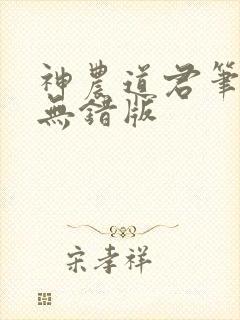 神農道君筆
無錯版
宋孝祥